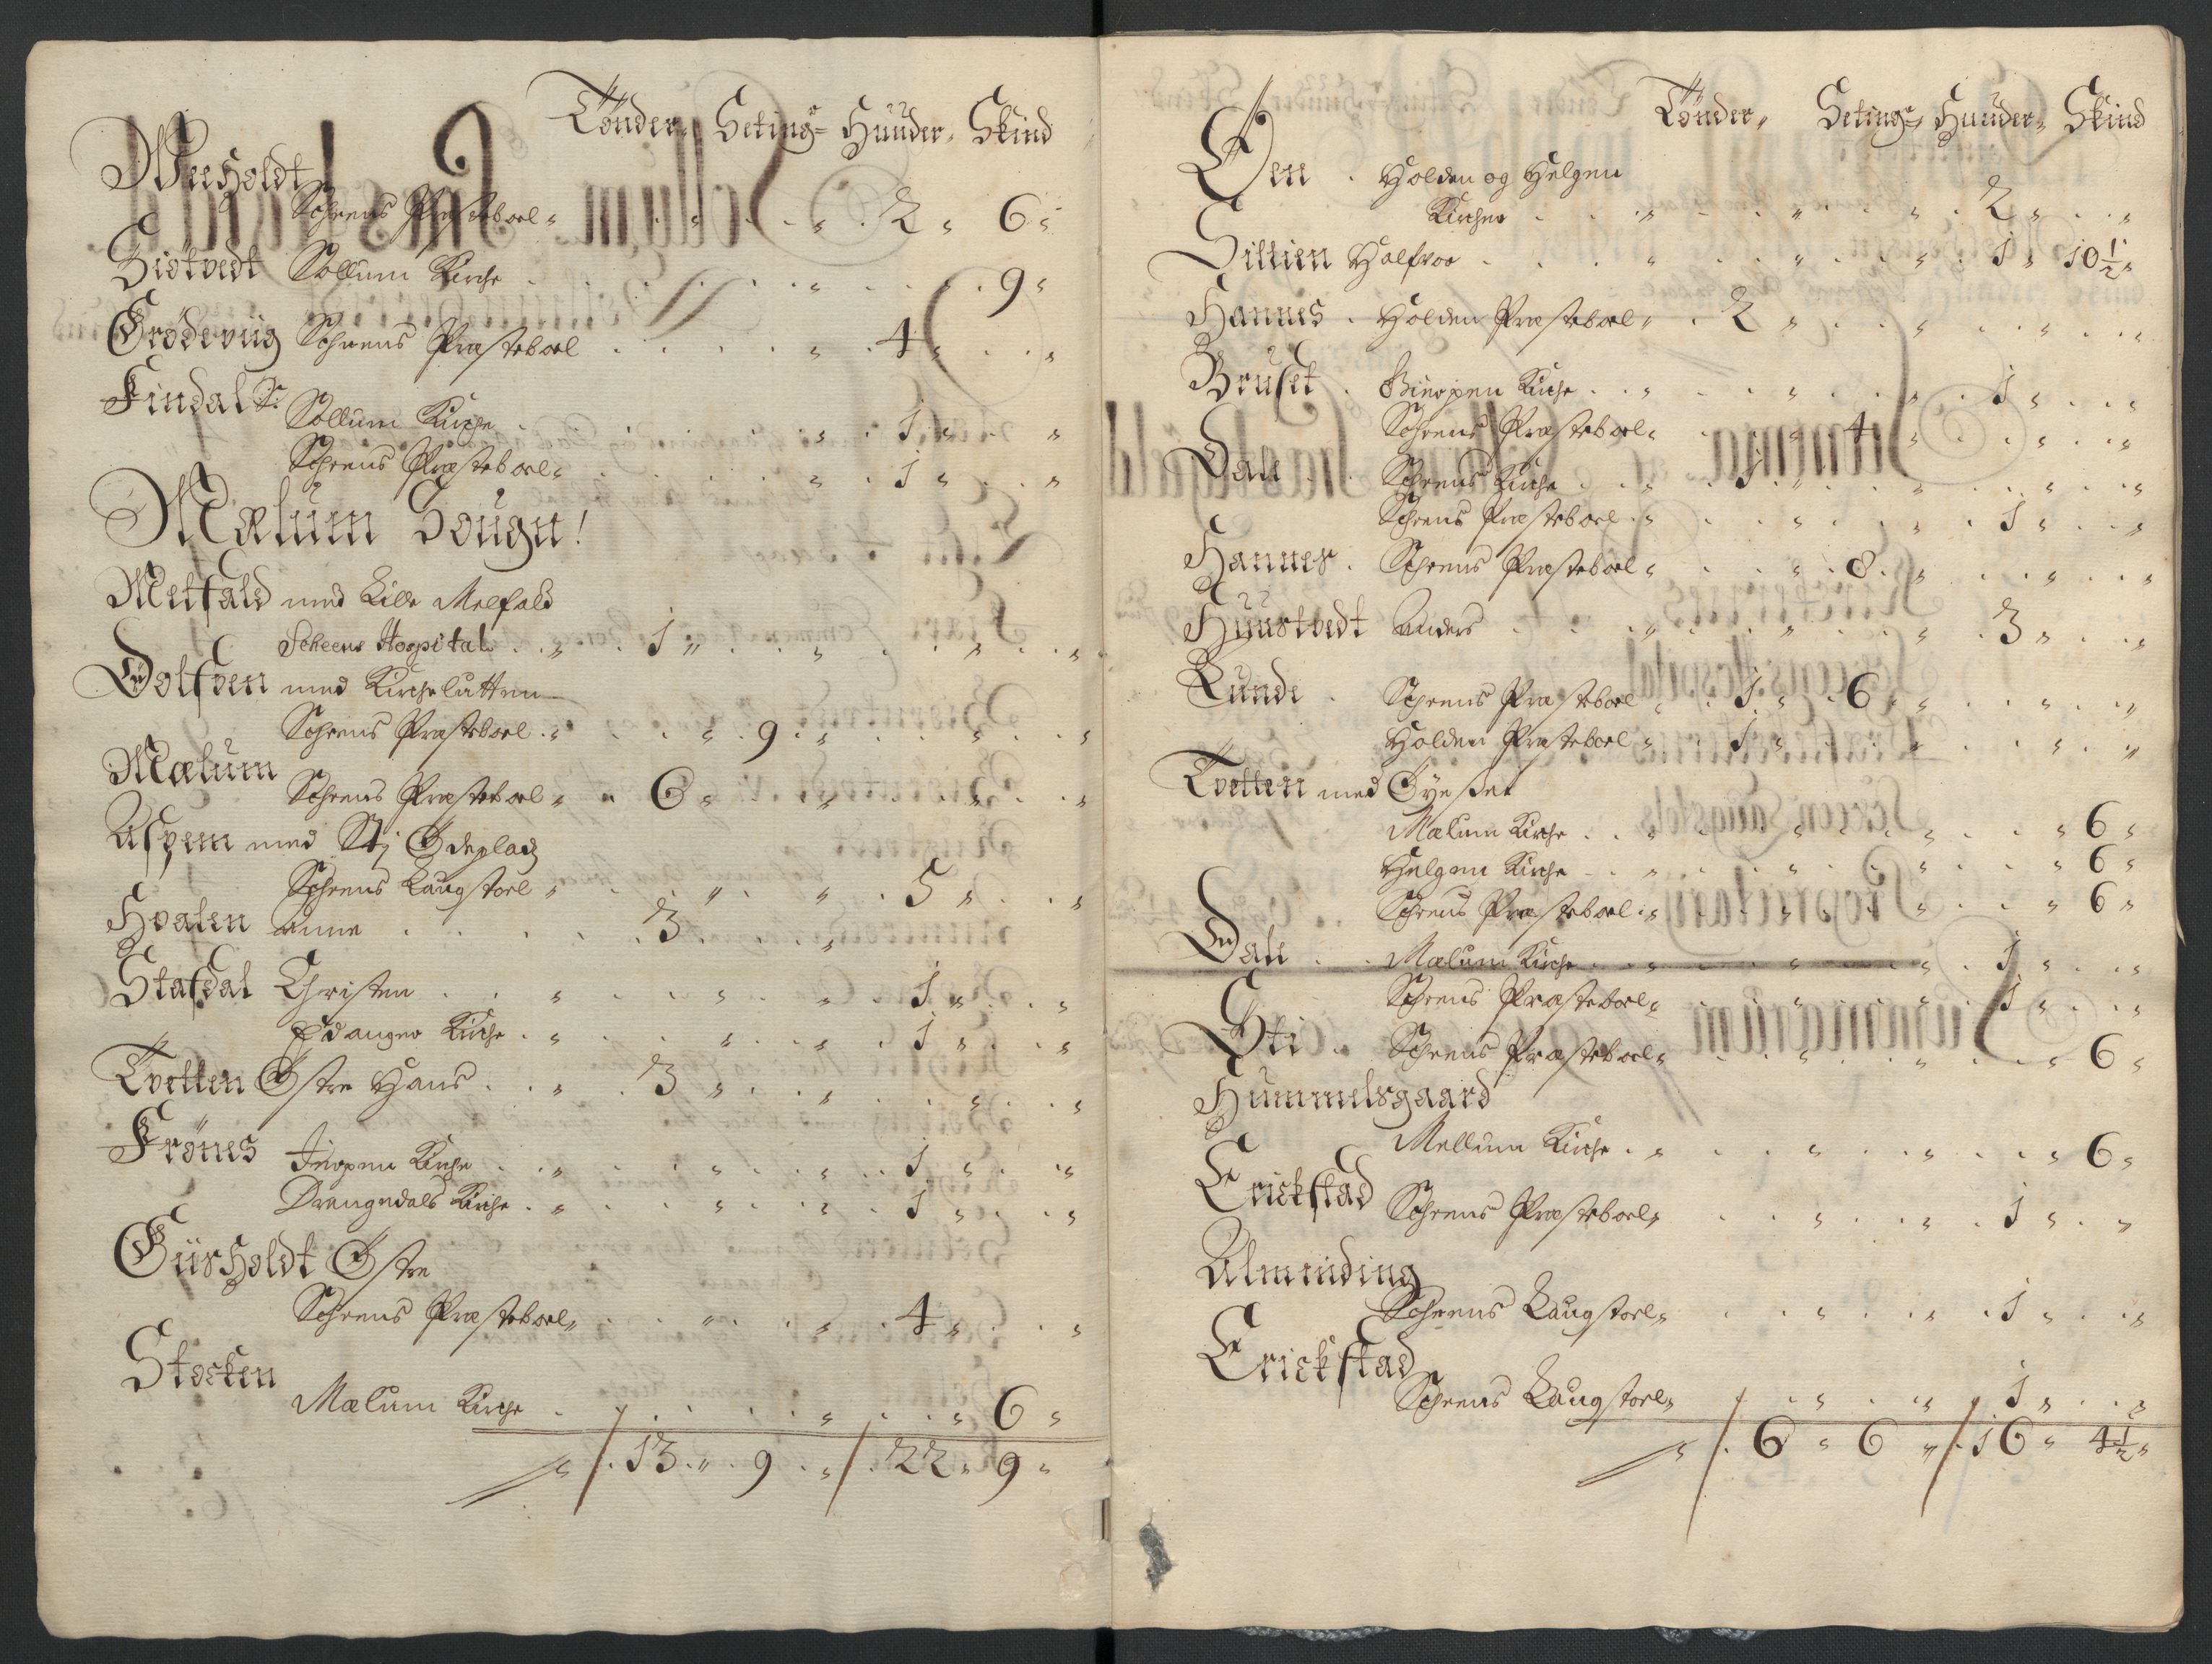 Tönder, Seting= Huuder, Skind
Meeholdt
Scheens Præsteboel " . . " . . " . 2 " 6 "
Giötvedt Sollum Kirche . . . . . " . . . 9 "
Grödeviig Scheens Præsteboel . . . . " . 4 " . . "
Findal
Sollum Kirche . . . . " . 1 " . . "
Scheens Præsteboel " . . . . " . 1 " . . "
Mælum Sougn!
Melfald med Lille Melfald
Scheens Hospital . . " . 1 " . . " . . " . . "
Dolfven med Kirchelutten
Scheens Præsteboel . " . . " 9 . " . . " . . "
Mælum
Scheens Præsteboel " . 6 " . . " . . " . . "
Aspem med Stj Ödeplads
Scheens Laugstoel " . . " . " . 5 " . . "
Hvalen Anne . . . . 3 . . . "
Stafdal Christen . . " . . " . . " . 1 " . . "
Edanger Kirche . " . . " . . " . 1 " . . "
Tvetten Östre Hans . . " . 3 " . . " . . " . . "
Frönes Jerpen Kirche . . " . . " . . " . 1 " . . "
Drangedals Kirche . " . . " . . " . 1 " . . "
Gürholdt Östre
Scheens Præsteboel " . . " . . " . 4 " . . "
Stocken
Mælum Kirche . . . . . " . . " 6 "
" / . 13 . " . 9 . " / . 22 " 9 "
Tönder, Seting= Huuder, Skind
Öen . Holden og Helgen
Kircher . . " . . " . . " . 2 " . . "
Sillien Halfvor . . . " . . " . . " . 1 " 10½ "
Hannes . Holden Præsteboel " . 2 " . . " . . " . . "
Bruset . Bierpen Kirche . . " . . " . . " . 1 " . . "
Scheens Præsteboel " . . " 4 " . . " . . "
Dali . . Scheens Kirche . . " . 1 . " . . " . . " . . "
Scheens Præsteboel . " . . " . . " . 1 " . . "
Hanner . Scheens Præsteboel " . . " . 8 . " . . " . . "
Huustvedt Anders . . . " . . " . . " . 3 " . . "
Lunde . Scheens Præsteboel " . 1 " . 6 " " . . " . . "
Holden Præsteboel " . 1 " . . " . . " . . "
Tvetten med Öyeset
Mælum Kirche . . " . . " . . " . . " 6 "
Helgen Kirche . . " . . " . . " . . " 6 "
Scheens Præsteboel . " . . " . . " . . " 6 "
Dali . . Mælum Kirche . . " . . " . . " . 1 " . . "
Scheens Præsteboel " . . " . . " . 1 " . . "
Sti . Scheens Præsteboel " . . " . . " . . " 6 "
Hummelsgaard
Mellum Kirche . " . . " . . " . . " 6 "
Erickstad
Scheens Præsteboel " . . " . . " . 1 " . . "
Almending
Scheens Laugstoel " . . " . . " . 1 " . . "
Erickstad
Scheens Laugstoel " . . " . . " . 1 " . . "
" / . 6 " 6 " / . 16 " 4½ "